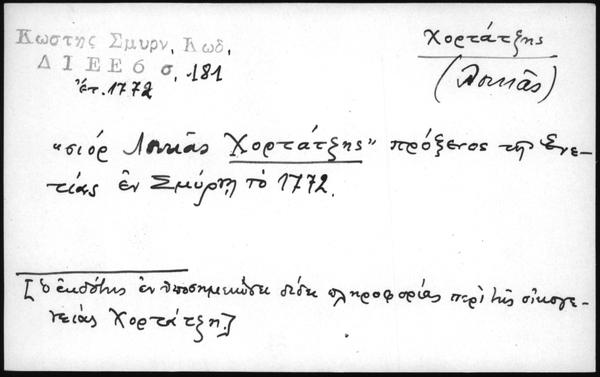 Κωστης Σμυρν. Κωδ.
ΔΙΕΕ6 σ. 181
ἔτ. 1772
Χορτάτζης
(Λουκᾶς)
"σιόρ Λουκᾶς Χορτάτζης" πρόξενος τῆς Ενε-
τίας ἐν Σμύρνῃ τὸ 1772.
[ὁ ἐκδότης ἐν ὑποσημειώσει δίδει πληροφορίας περὶ τῆς οἰκογε-
νείας Χορτάτζη.]